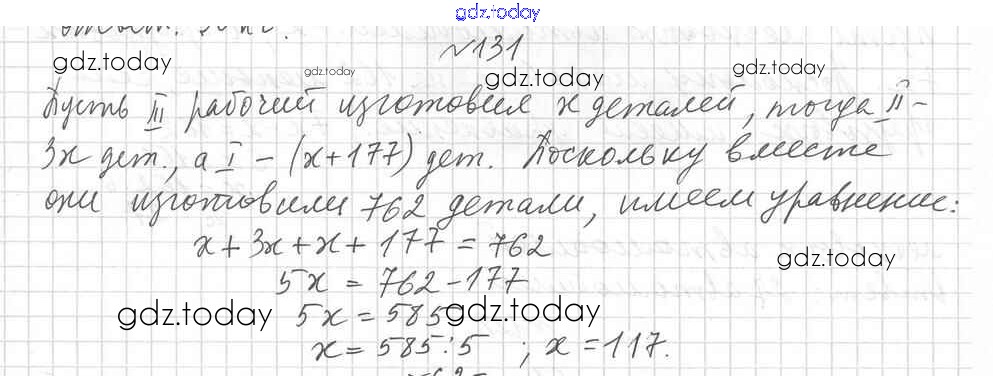 gdz.today
№131
gdz.today gdz.today gdz.today gdz.today
Пусть III рабочий изготовил x деталей, тогда II -
3x дет., а I - (x+177) дет. Поскольку вместе
они изготовили 762 детали, имеем уравнение:
x + 3x + x + 177 = 762
gdz.today
5x = 762 - 177
gdz.today 5x = 585 gdz.today
x = 585:5 ; x = 117.